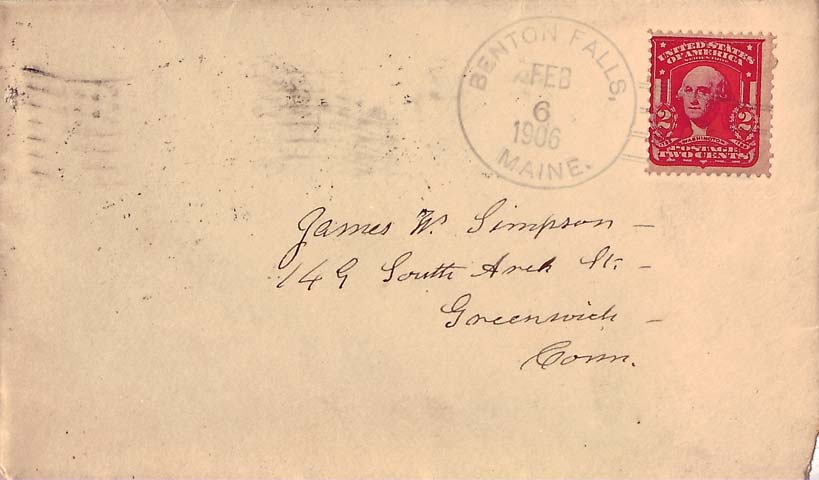 BENTON FALLS,
FEB
6
1906
MAINE.
UNITED STATES
OF AMERICA
2 2
WASHINGTON
POSTAGE
TWO CENTS
James W. Simpson –
149 South Arch St. –
Greenwich –
Conn.